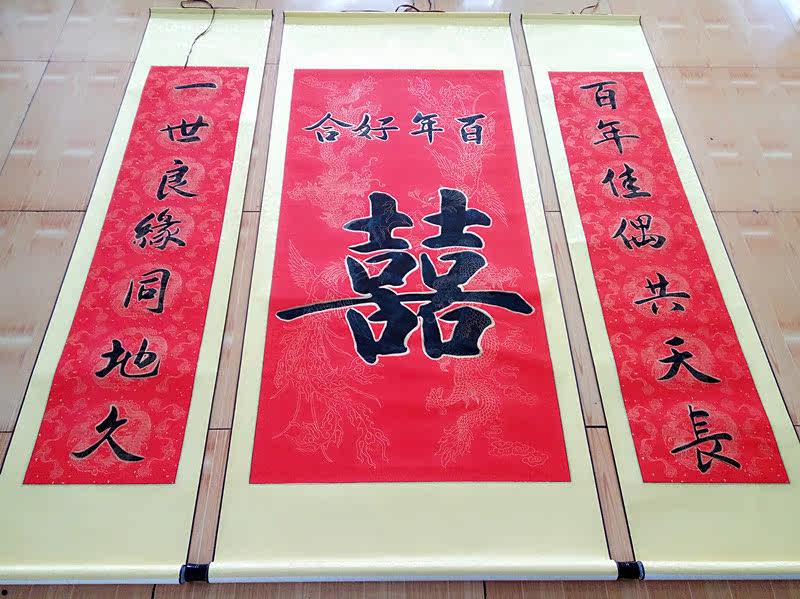 百年好合
囍
百年佳偶共天長
一世良緣同地久